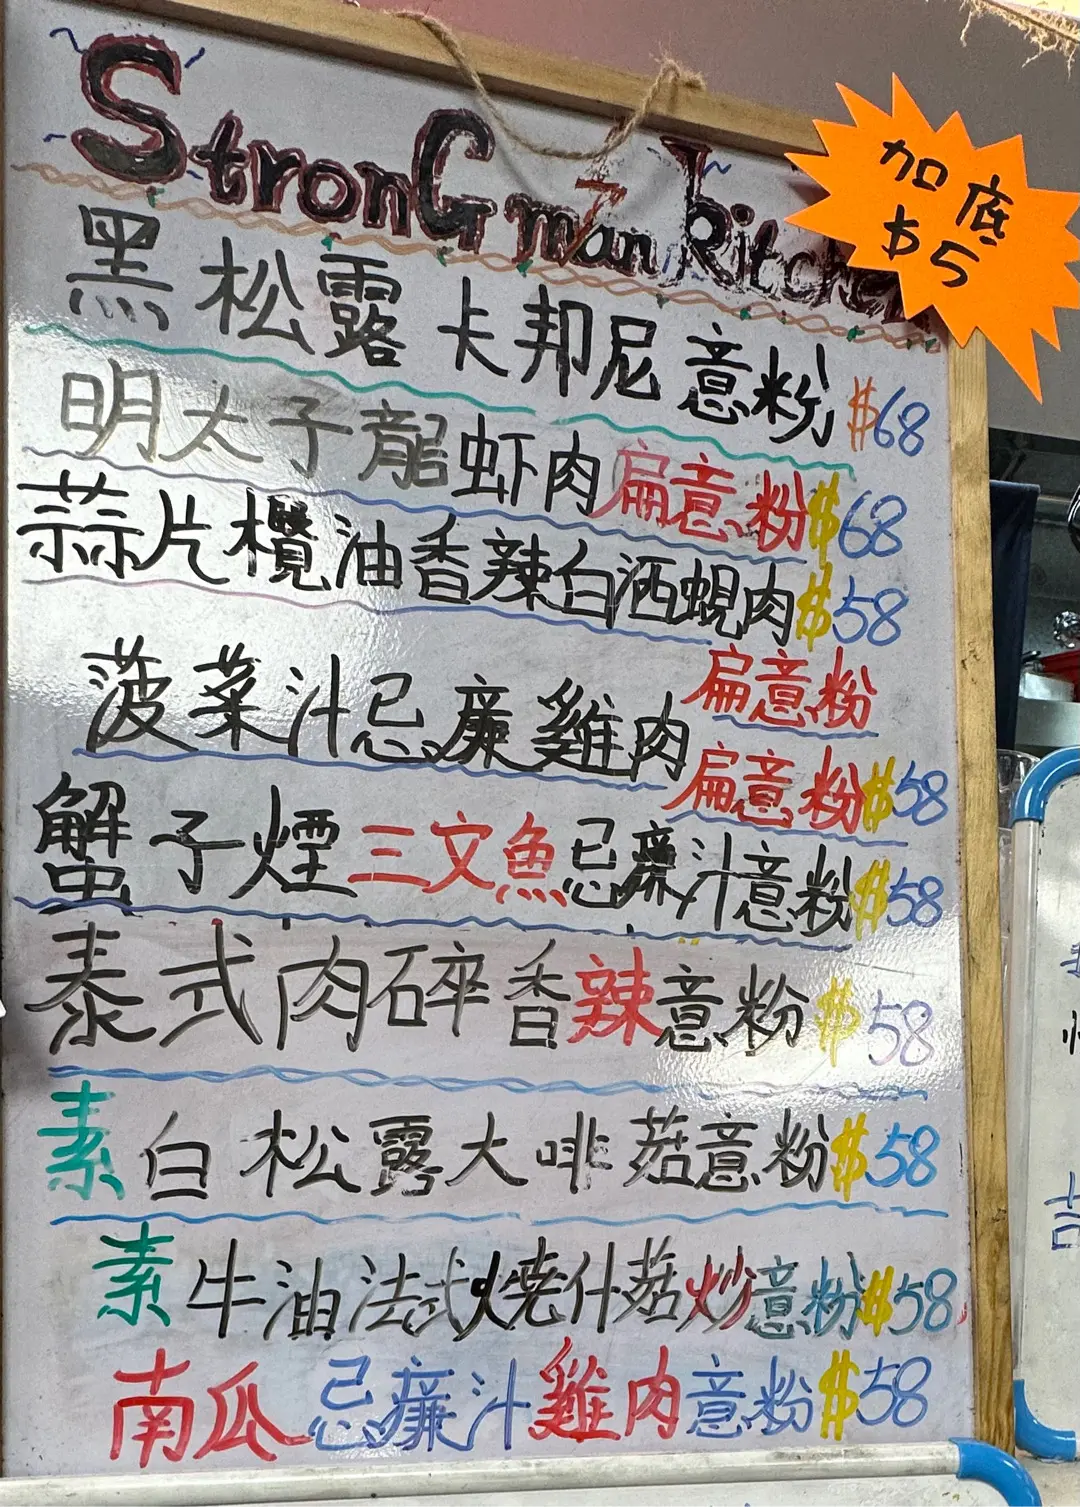 StronG man kitchen
加底
$5
黑松露卡邦尼意粉 $68
明太子龍虾肉扁意粉 $68
蒜片欖油香辣白洒蜆肉 $58
扁意粉
菠菜汁忌廉雞肉
扁意粉 $58
蟹子煙三文魚忌廉汁意粉 $58
泰式肉碎香辣意粉 $58
素 白松露大啡菇意粉 $58
素 牛油法式燒什菇炒意粉 $58
南瓜忌廉汁雞肉意粉 $58